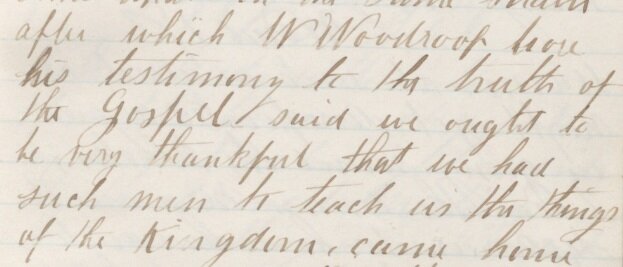 in the same strain
after which W Woodroof bore
his testimony to the truth of
the Gospel said we ought to
be very thankful that we had
such men to teach us the things
of the Kingdom. came home